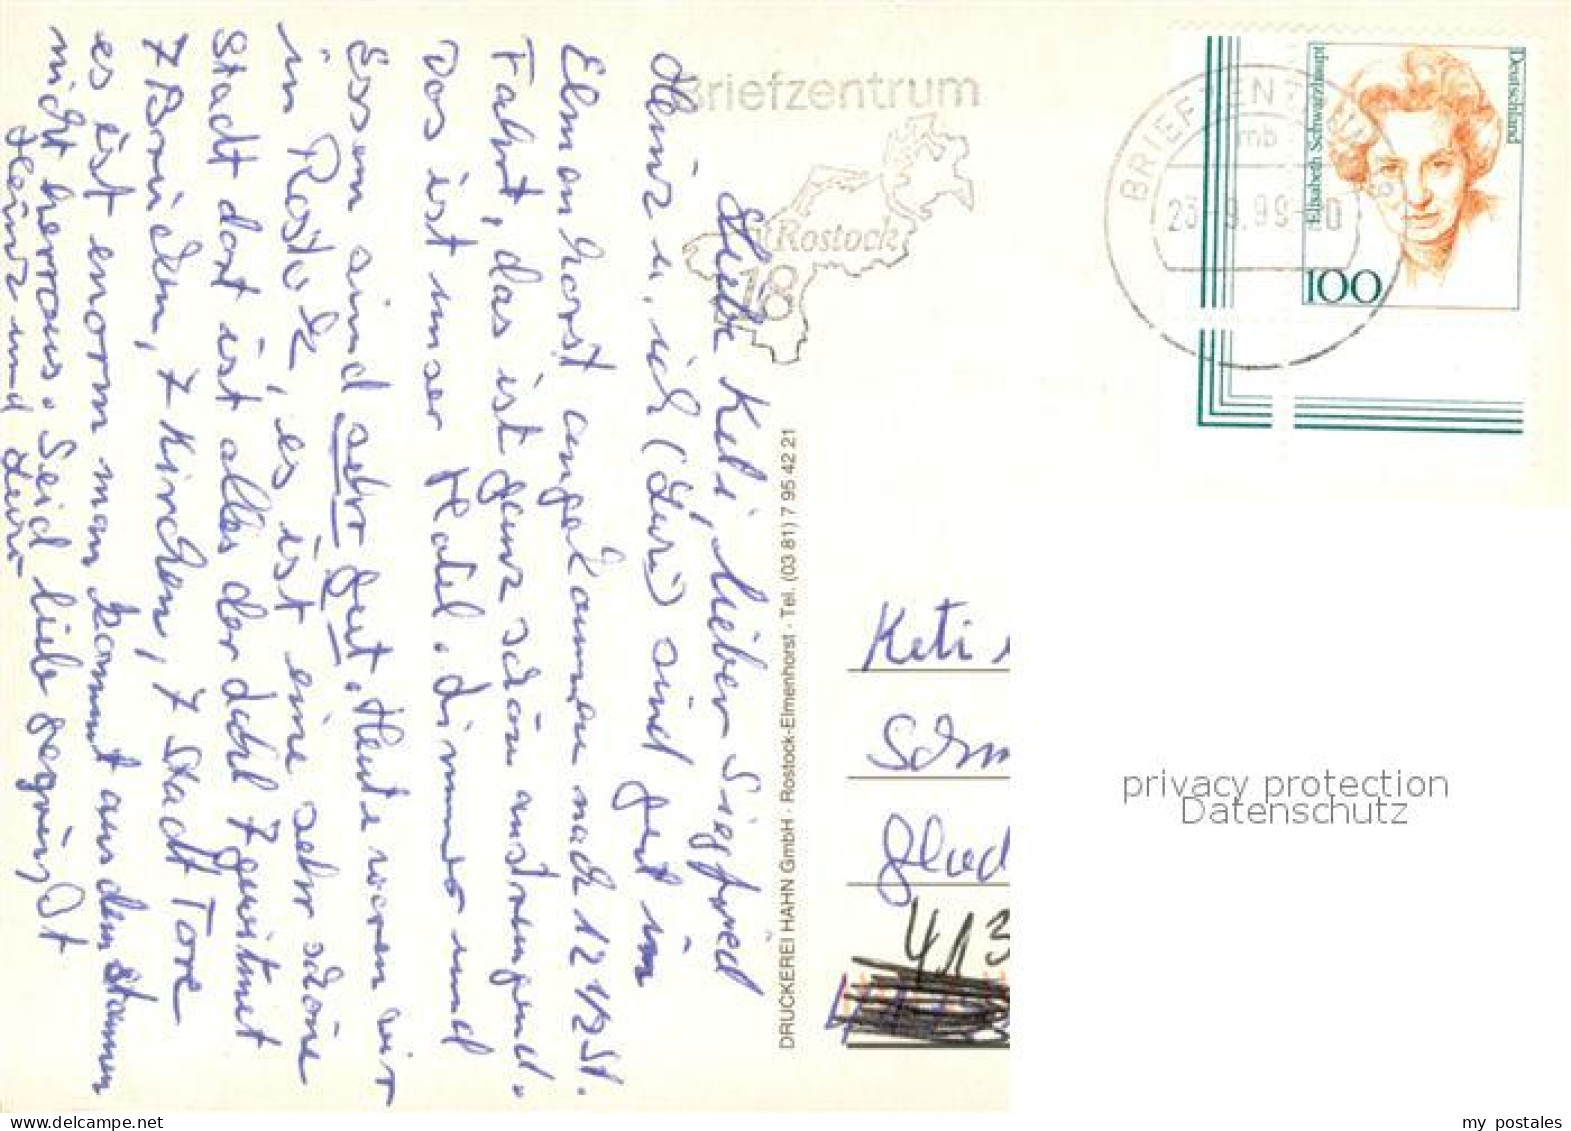 Liebe Keti, lieber Siegfried
Heinz u. ich (Luzi) sind gut in
Elmenhorst angekommen nach 12 1/2 St.
Fahrt, das ist ganz schön anstrengend.
Das ist unser Hotel. Zimmer und
Essen sind sehr gut. Heute waren wir
in Rostock, es ist eine sehr schöne
Stadt dort ist alles der
7 Brücken, 7 Kirchen, 7 Stadt Tore
es ist enorm man kommt aus dem Staunen
nicht herraus. Seid lieb gegrüßt
Heinz und Luzi
Briefzentrum
Rostock
18
DRUCKEREI HAHN GmbH · Rostock-Elmenhorst · Tel. (03 81) 7 95 42 21
BRIEFZENTRUM
mb
Deutschland
Elisabeth Schwarzhaupt
100
Keti
Schm
Glad
413
privacy protection
Datenschutz
my_postales